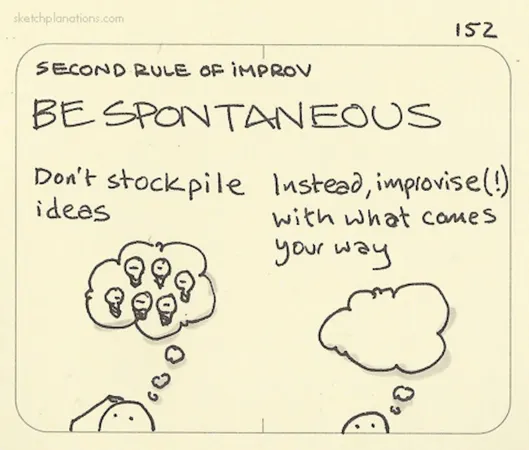 sketchplanations.com
152
SECOND RULE OF IMPROV
BE SPONTANEOUS
Don't stockpile
ideas
Instead, improvise(!)
with what comes
your way